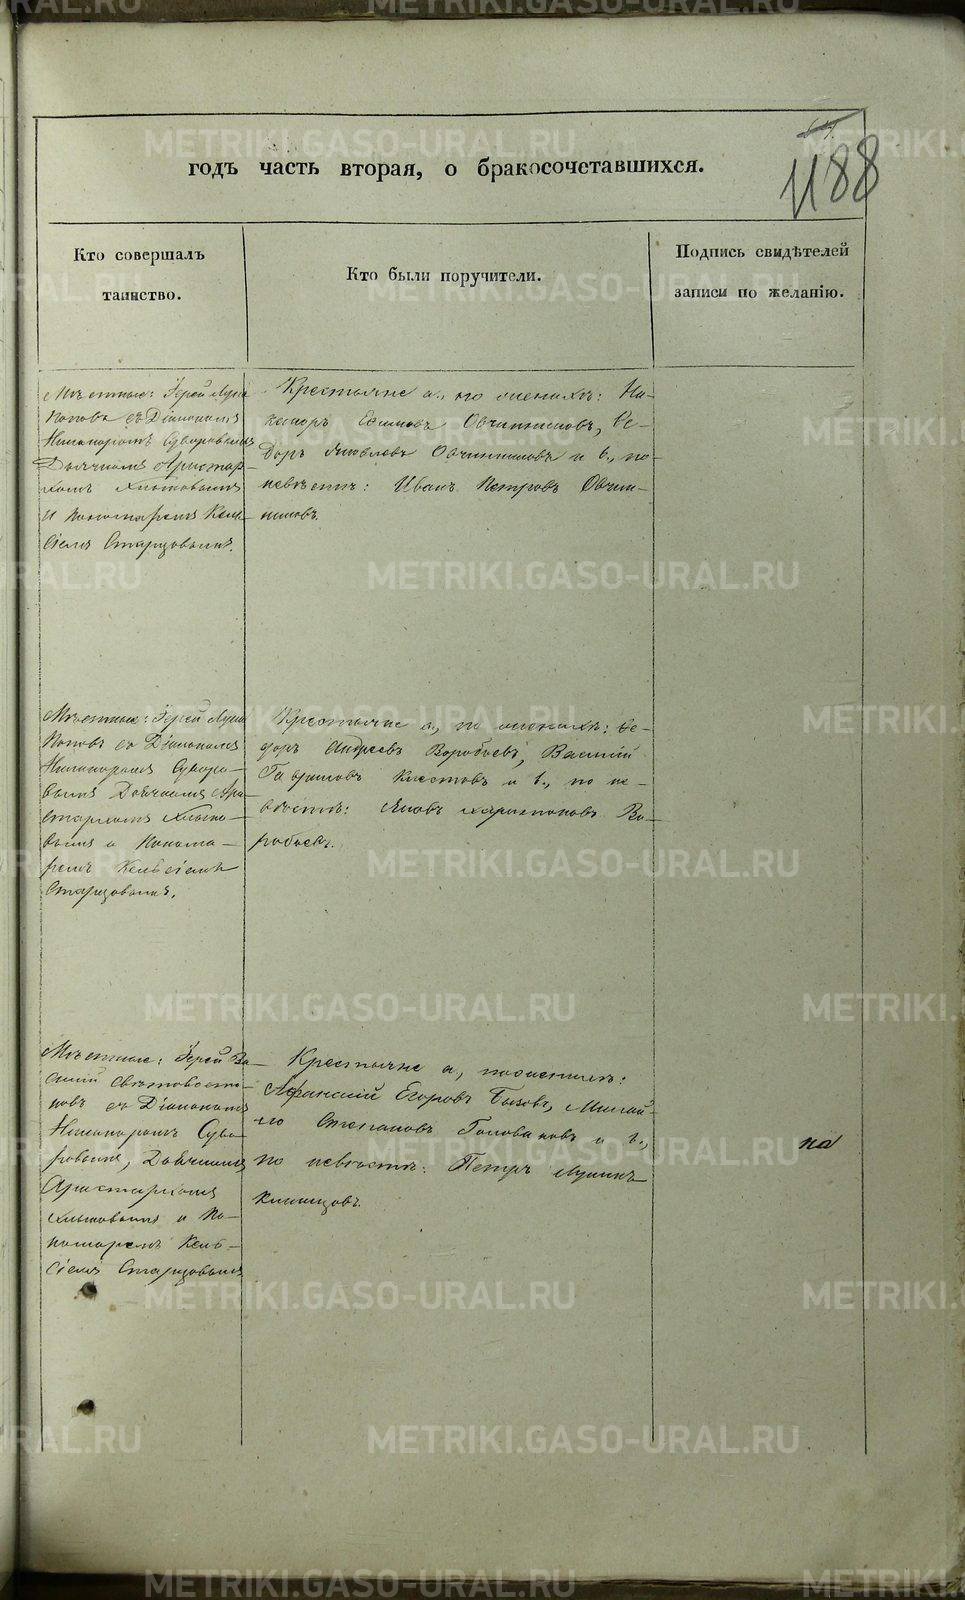 годъ часть вторая, о бракосочетавшихся.
64.
1188
Кто совершалъ
таинство.
Кто были поручители.
Подпись свидѣтелей
записи по желанію.
Мѣстные: Іерей Лука
Поповъ съ Діакономъ
Никаноромъ Суворовымъ
Дьячкомъ Аристар-
хомъ Хлыновымъ
и пономаремъ Кель-
сіемъ Старцовымъ.
Крестьяне а., по женихѣ: Ни-
каноръ Овчинниковъ, Ѳе-
доръ Яковлевъ Овчинниковъ и б., по
невѣстѣ: Иванъ Петровъ Овчин-
никовъ.
Мѣстные: Іерей Лука
Поповъ съ Діакономъ
Никаноромъ Суворо-
вымъ Дьячкомъ Ари-
стархомъ Хлыно-
вымъ и Понома-
ремъ Кельсіемъ
Старцовымъ.
Крестьяне а., по женихѣ: Ѳе-
доръ Андреевъ Воробьевъ, Василій
Гавриловъ и б., по не-
вѣстѣ: Яковъ Харитоновъ Во-
робьевъ.
Мѣстные: Іерей Ва-
силій
съ Діакономъ
Никаноромъ Суво-
ровымъ, Дьячкомъ
Аристархомъ
Хлыновымъ и По-
номаремъ Кель-
сіемъ Старцовымъ
Крестьяне а., по женихѣ:
Афанасій Егоровъ Быковъ, Михай-
ло Степановъ Головановъ и б.,
по невѣстѣ: Петръ Лукинъ
на
METRIKI.GASO-URAL.RU